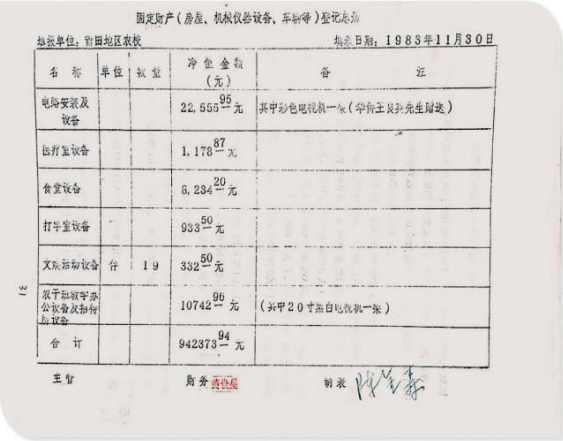 固定财产(房屋、机械仪器设备、车辆等)登记总结
填报单位：莆田地区农校 填表日期：1983年11月30日
名称 单位 数量 净值金额(元) 备注
电路安装及设备 22,555.95元 其中彩色电视机一架(华侨王 先生赠送)
医疗室设备 1,178.87元
食堂设备 6,234.20元
打字室设备 933.50元
文娱活动设备 件 19 332.50元
农干班教学办公设备及招待所设备 10742.96元 (其中20寸黑白电视机一架)
合计 942373.94元
31
主管 财务 制表